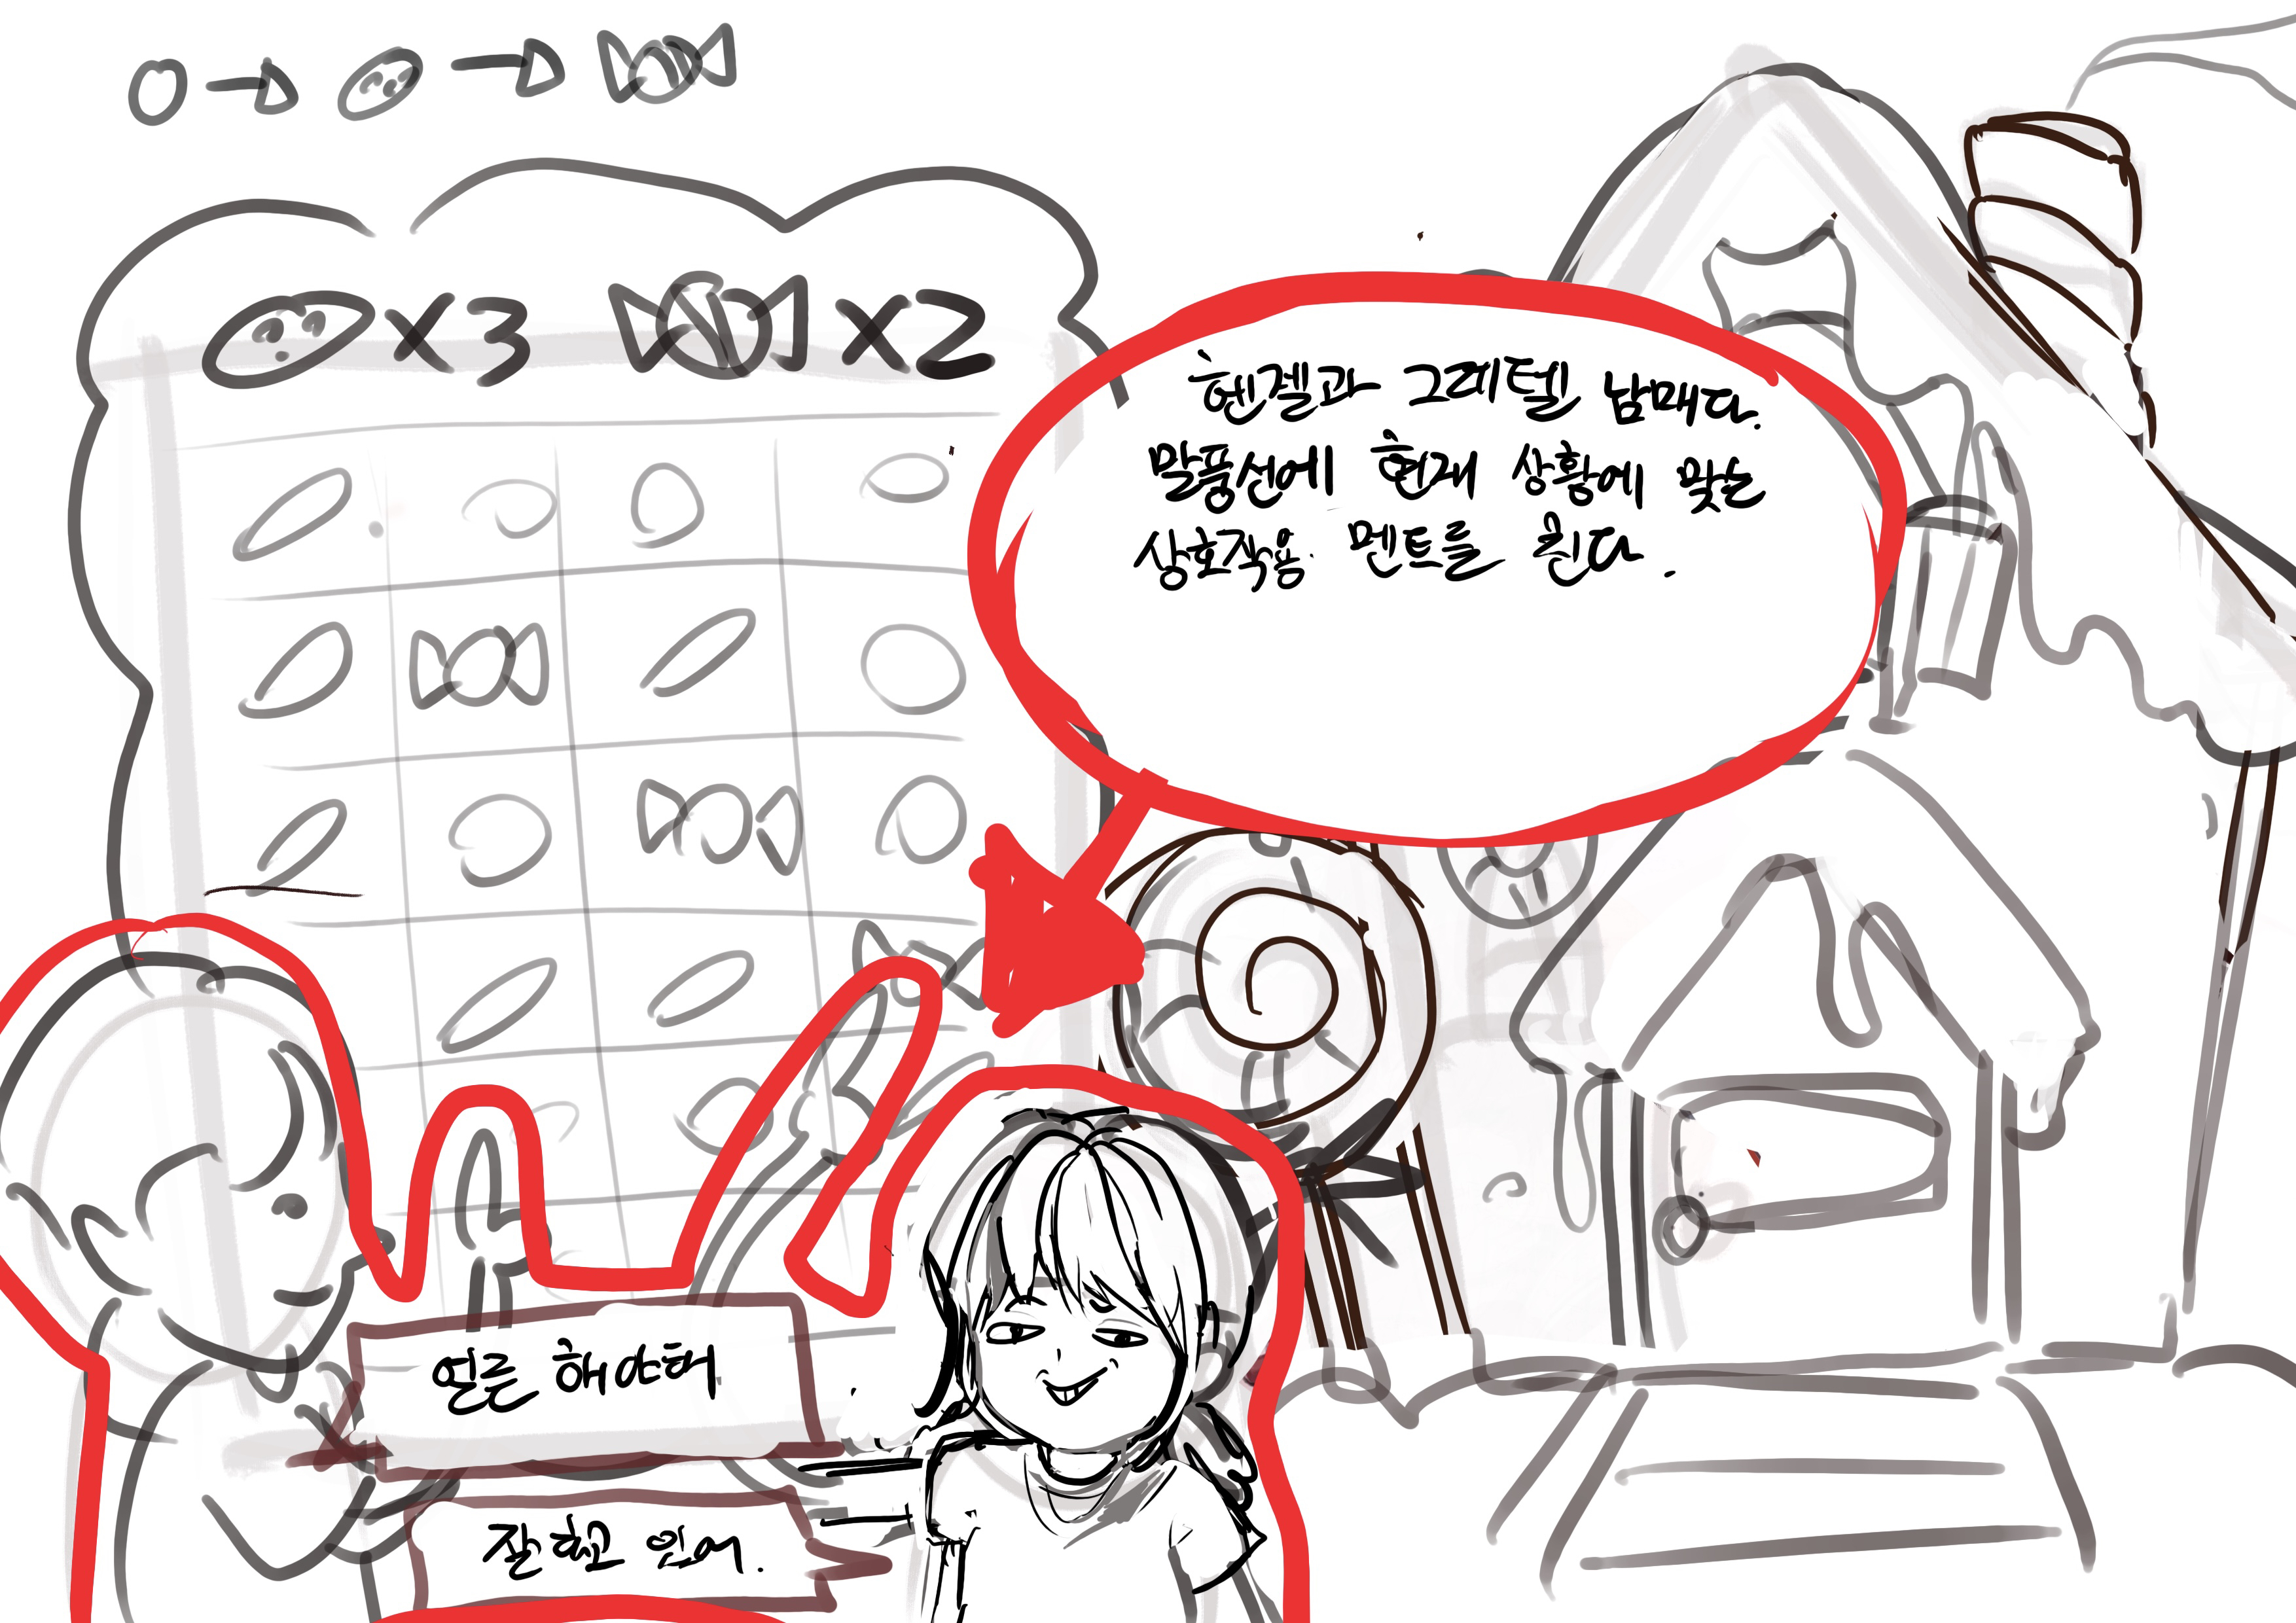 x3 x2
헨젤과 그레텔 남매다.
말풍선에 현재 상황에 맞는
상호작용 멘트를 친다.
얼른 해야해
잘하고 있어.